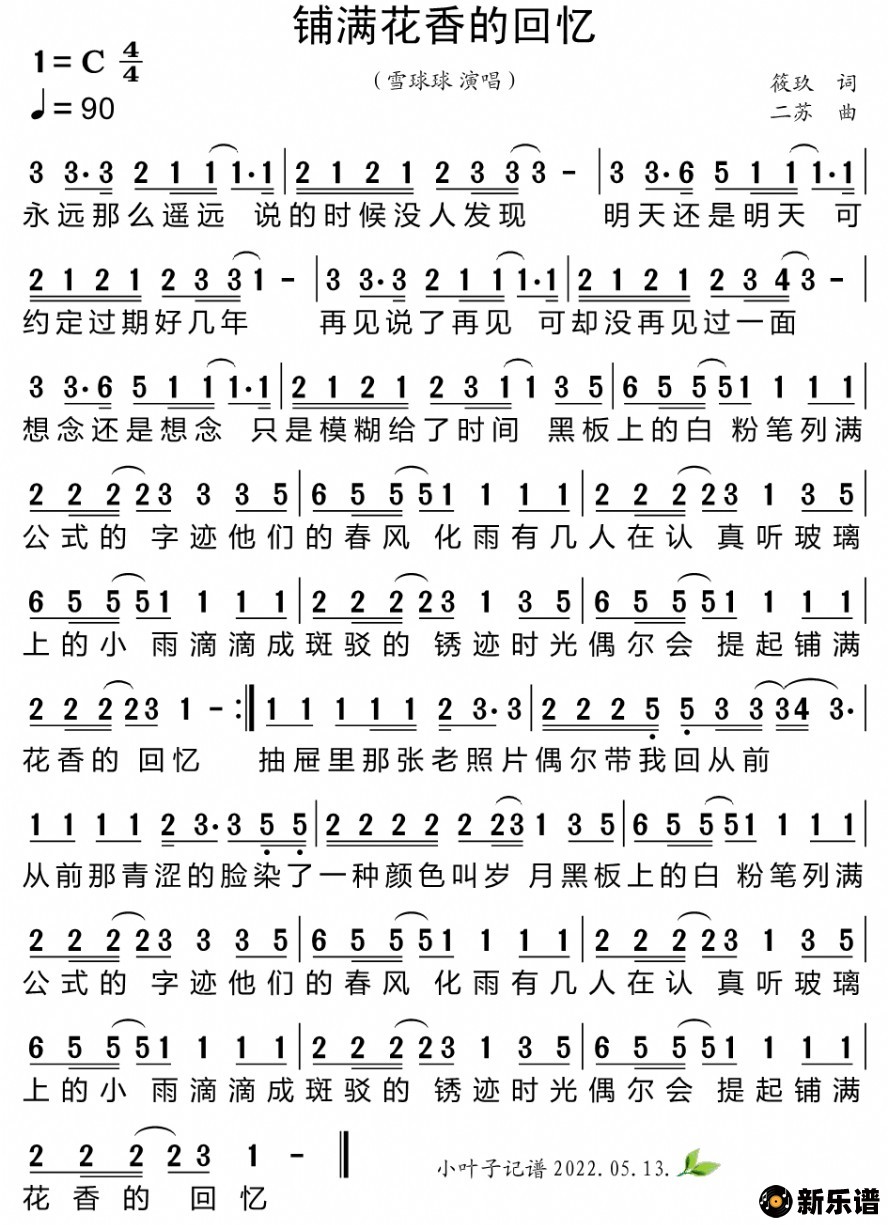 铺满花香的回忆
1=C 4/4
（雪球球 演唱）
筱玖 词
♩=90
二苏 曲
3 3·3 2 1 1 1·1 | 2 1 2 1 2 3 3 3 - | 3 3·6 5 1 1 1·1 |
永远那么遥远 说的时候没人发现 明天还是明天 可
2 1 2 1 2 3 3 1 - | 3 3·3 2 1 1 1·1 | 2 1 2 1 2 3 4 3 - |
约定过期好几年 再见说了再见 可却没再见过一面
3 3·6 5 1 1 1·1 | 2 1 2 1 2 3 1 1 3 5 | 6 5 5 5 1 1 1 1 1 |
想念还是想念 只是模糊给了时间 黑板上的白 粉笔列满
2 2 2 2 3 3 3 3 5 | 6 5 5 5 1 1 1 1 1 | 2 2 2 2 3 1 3 5 |
公式的 字迹他们的春风 化雨有几人在认 真听玻璃
6 5 5 5 1 1 1 1 1 | 2 2 2 2 3 1 3 5 | 6 5 5 5 1 1 1 1 1 |
上的小 雨滴滴成斑驳的 锈迹时光偶尔会 提起铺满
2 2 2 2 3 1 - :‖ 1 1 1 1 1 2 3·3 | 2 2 2 5̣ 5̣ 3 3 3 4 3· |
花香的 回忆 抽屉里那张老照片偶尔带我回从前
1 1 1 1 2 3·3 5̣ 5̣ | 2 2 2 2 2 2 3 1 3 5 | 6 5 5 5 1 1 1 1 |
从前那青涩的脸染了一种颜色叫岁 月黑板上的白 粉笔列满
2 2 2 2 3 3 3 3 5 | 6 5 5 5 1 1 1 1 1 | 2 2 2 2 3 1 3 5 |
公式的 字迹他们的春风 化雨有几人在认 真听玻璃
6 5 5 5 1 1 1 1 1 | 2 2 2 2 3 1 3 5 | 6 5 5 5 1 1 1 1 1 |
上的小 雨滴滴成斑驳的 锈迹时光偶尔会 提起铺满
2 2 2 2 3 1 - ‖
小叶子记谱 2022.05.13.
花香的 回忆
新乐谱